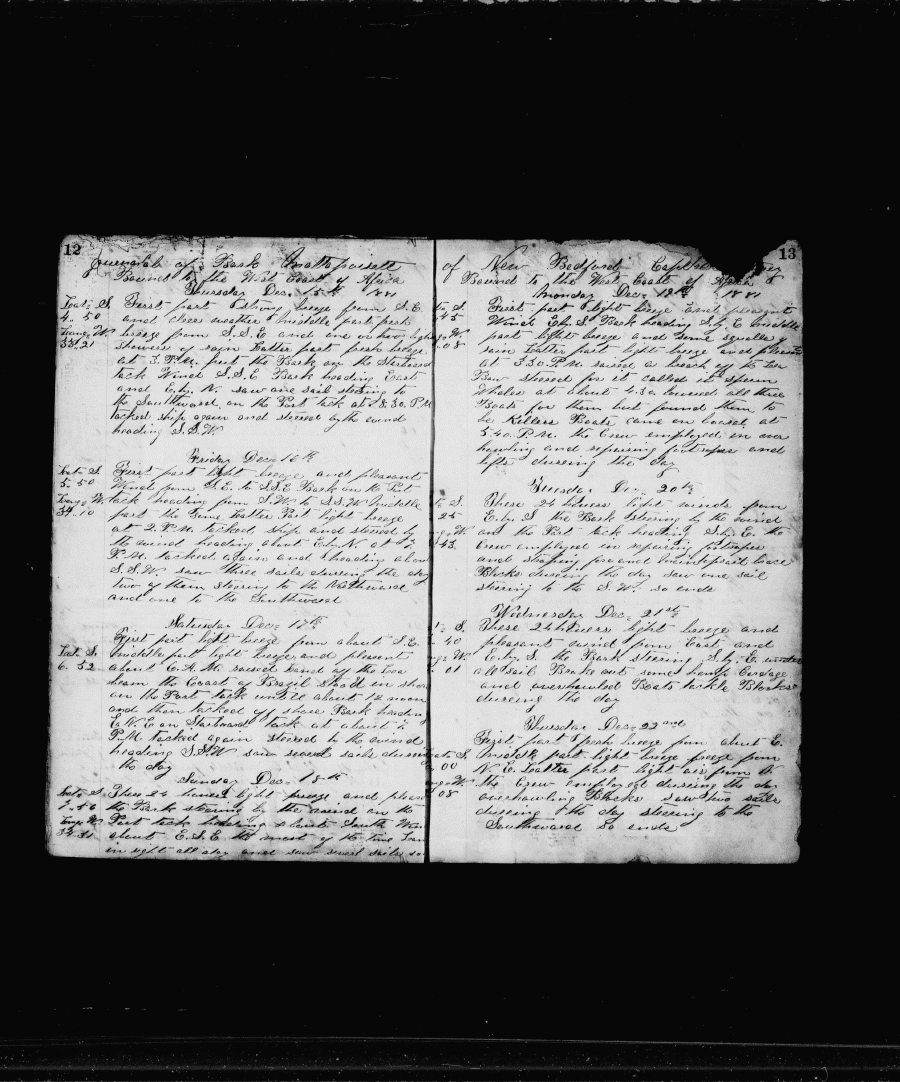 12
Journal of Bark Mattapoisett
Bound to the West Coast of Africa
Thursday Dec. 15th 1881
Lat. S. First part strong breeze from S.E.
4.50 and clear weather Middle part fresh
Long. W. breeze from S.S.E. and one or two light
33.21 showers of rain Latter part fresh breeze
at 3. P.M. put the Bark on the Starboard
tack Wind S.S.E Bark heading East
and E.by.N. saw one sail steering to
the Southward, on the Port tack at 8.30. P.M
tacked ship again and steered by the wind
heading S.S.W
Friday Dec. 16th
Lat. S. First part light breeze and pleasant
5.50 Wind from S.E. to S.S.E Bark on the Port
Long. W. tack heading from S.W. to S.S.W. Middle
34.10 part the same Latter Part light breeze
at 2. P.M. tacked ship and steered by
the wind heading about E.by.N. at
P.M. tacked again and heading about
S.S.W. saw three sails dureing the day
two of them steering to the Northward
and one to the Southward
Saturday Dec. 17th
First part light breeze from about S.E.
Lat. S. Middle part light breeze and pleasent
6.52 about 6.A.M. raised land off the Lee
beam the Coast of Brazil Stood in shore
on the Port tack untill about 12 noon
and then tacked off shore Bark heading
E.N.E on Starboard tack at about
P.M. tacked again steered by the wind
heading S.S.W saw several sails dureing
the day
Sunday Dec. 18th
Lat. S. These 24 houers light breeze and pleas
7.56 the Bark steering by the wind on the
Long. W Port tack heading about South Wind
34.31 about E.S.E the most of the time Land
in sight all day and saw several sails
13
of New Bedford Captain
Bound to the West Coast of Africa
Monday Dec. 19th 1881
S. First part light breeze and pleasent
45 Wind E.by.S. Bark heading S.by.E Middle
W. part light breeze and some squalls of
08 rain Latter part light breeze and pleasent
at 3.30.P.M raised a breach off the Lee
Bow steered for it called it Sperm
Whales at about 4.30 lowered all three
Boats for them but found them to
be Killers Boats came on board at
5.40.P.M. the Crew employed in over
hawling and repairing footropes and
lifts dureing the day
Tuesday Dec. 20th
S. These 24 houers light winds from
25 E.by.S the Bark steering by the wind
W. on the Port tack heading S.by.E. the
43. Crew employed in repairing footropes
and straping fore and main brace
Blocks dureing the day saw one sail
steering to the S.W. so ends
Wednesday Dec. 21st
S. These 24 houers light breeze and
40 pleasant wind from East and
W. E.by.S the Bark steering S.by.E. under
01 all sail Broke out some hemp Cordage
and overhawled Boats tackle Blocks
dureing the day
Thursday Dec. 22nd
First part fresh breeze from about E.
S. Middle part light breeze from
00 N.E. Latter part light air from N
W. the Crew employed dureing the day
08 overhawling Blocks saw two sails
dureing the day steering to the
Southward so ends